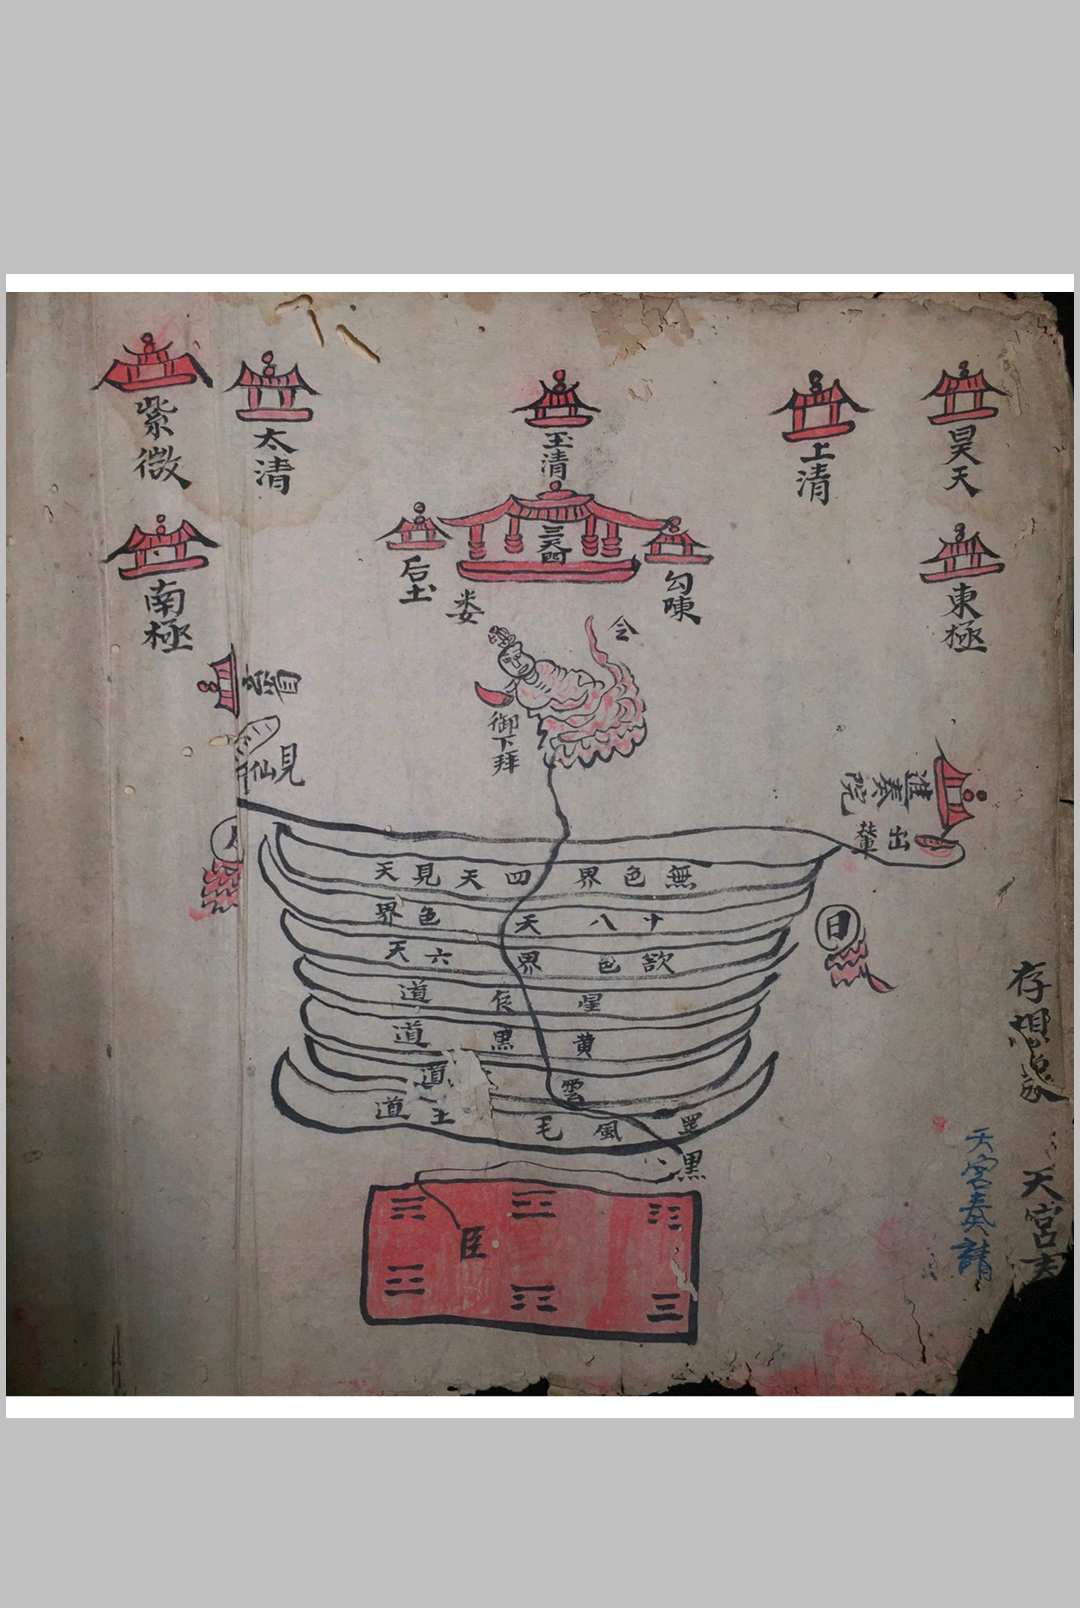 存想
天宮
天宮奏請
昊天
東極
上清
玉清
三天門
勾陳
后土
太清
紫微
南極
令
娄
御下拜
見
仙
進奏院
出
輦
日
無色界 四天見天
十八天 色界
欲色界 六天
星 道
黃黑道
雲 道
風毛 王道
黑
臣